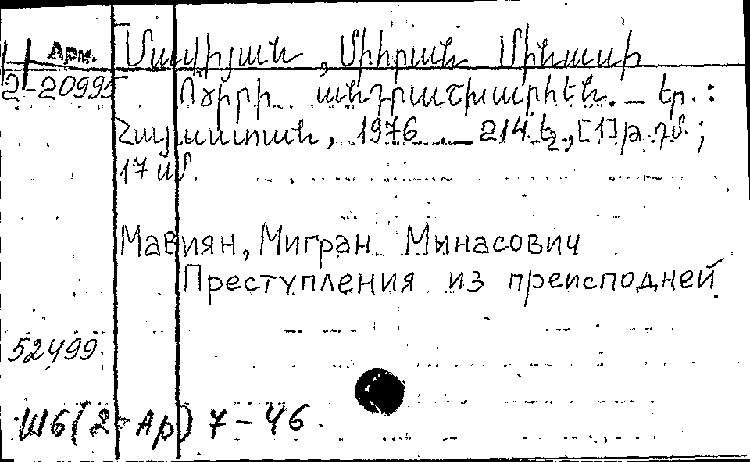 Арм. Մավիյան, Միհրան Մինասի
2-20995 Ոճիրի անդրաշխարհէն. — Եր. :
Հայաստան, 1976. — 214 էջ, [1] թ. դմ. ;
17 սմ.
Мавиян, Мигран Мынасович
Преступления из преисподней
52499
Ш6(2=Ар)7-46